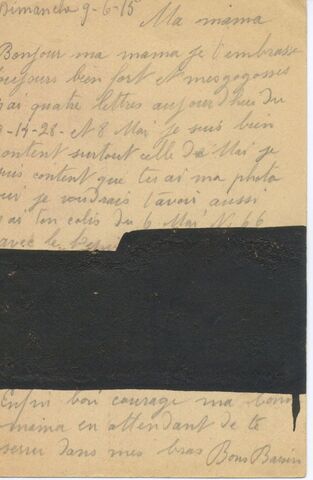 Dimanche 9-6-15
Ma mama
Bonjour ma mama je t'embrasse
toujours bien fort et mes gogosses
j'ai quatre lettres aujourd'hui du
-14-28- et 8 Mai je suis bien
content surtout celle de Mai je
suis content que tu ai ma photo
oui je voudrais t'avoir aussi
j'ai ton colis du 6 Mai N. 66
avec le
Enfin bon courage ma bonne
mama en attendant de te
serrer dans mes bras Bons Baisers